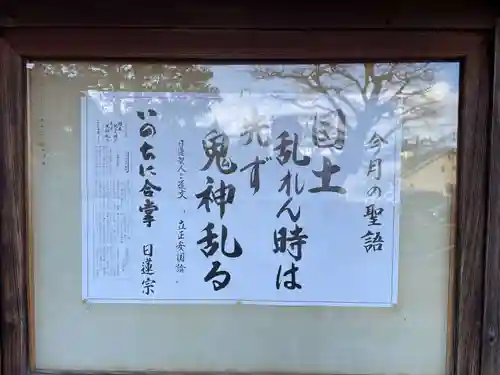 今月の聖語
国土
乱れん時は
先ず
鬼神乱る
日蓮聖人ご遺文 立正安国論
いのちに合掌 日蓮宗